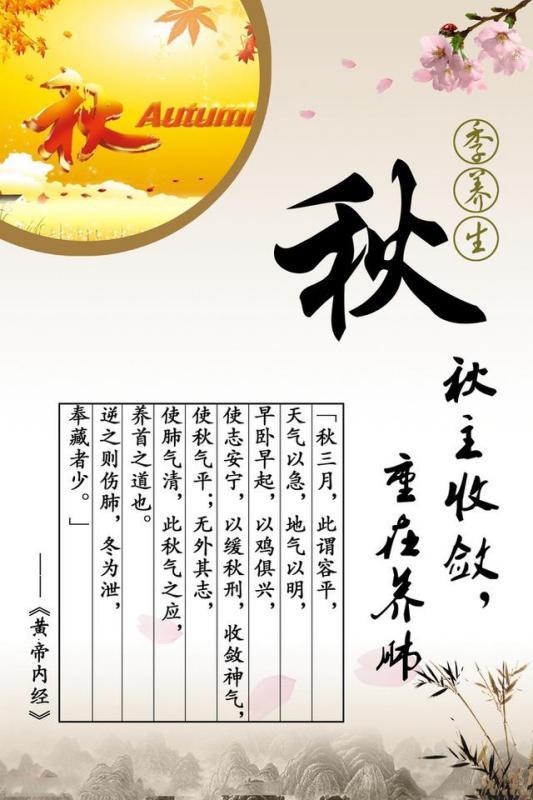 秋 Autumn
秋
季养生
秋主收敛，
重在养肺
「秋三月，此谓容平，
天气以急，地气以明，
早卧早起，以鸡俱兴，
使志安宁，以缓秋刑，收敛神气，
使秋气平；无外其志，
使肺气清，此秋气之应，
养首之道也。
逆之则伤肺，冬为泄，
奉藏者少。」
——《黄帝内经》